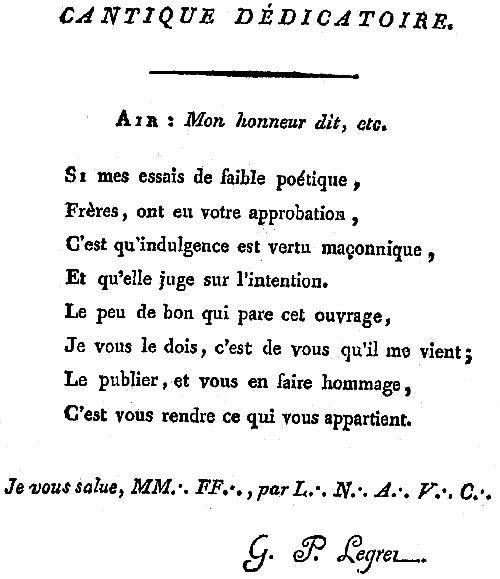 CANTIQUE DÉDICATOIRE.
AIR : Mon honneur dit, etc.
SI mes essais de faible poétique,
Frères, ont eu votre approbation,
C'est qu'indulgence est vertu maçonnique,
Et qu'elle juge sur l'intention.
Le peu de bon qui pare cet ouvrage,
Je vous le dois, c'est de vous qu'il me vient;
Le publier, et vous en faire hommage,
C'est vous rendre ce qui vous appartient.
Je vous salue, MM.·. FF.·., par L.·. N.·. A.·. V.·. C.·.
G. P. Legret